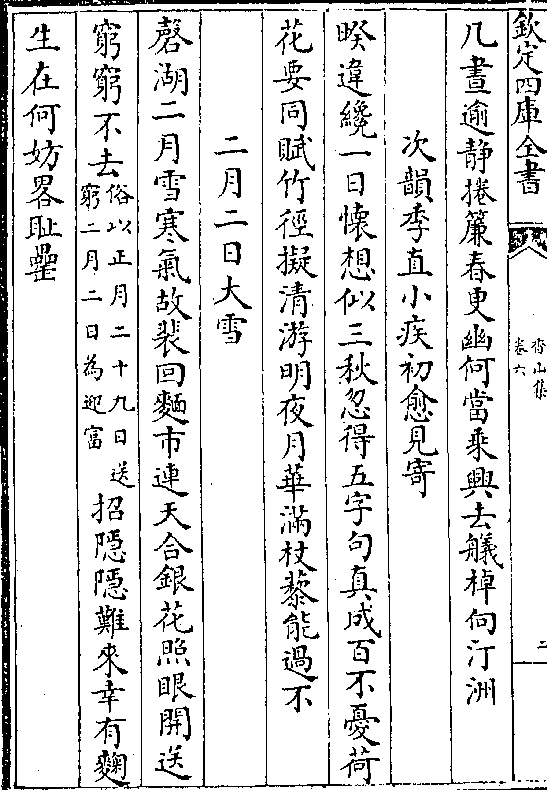 欽定四庫全書
香山集
卷六
二
几晝逾静捲簾春更幽何當乘興去艤棹向汀洲
次韻季直小疾初愈見寄
睽違纔一日懷想似三秋忽得五字句真成百不憂荷
花要同賦竹徑擬清游明夜月華滿杖藜能過不
二月二日大雪
磬湖二月雪寒氣故裴回麵市連天合銀花照眼開送
窮窮不去俗以正月二十九日送窮二月二日為迎富招隠隠難來幸有麴
生在何妨畧恥罍